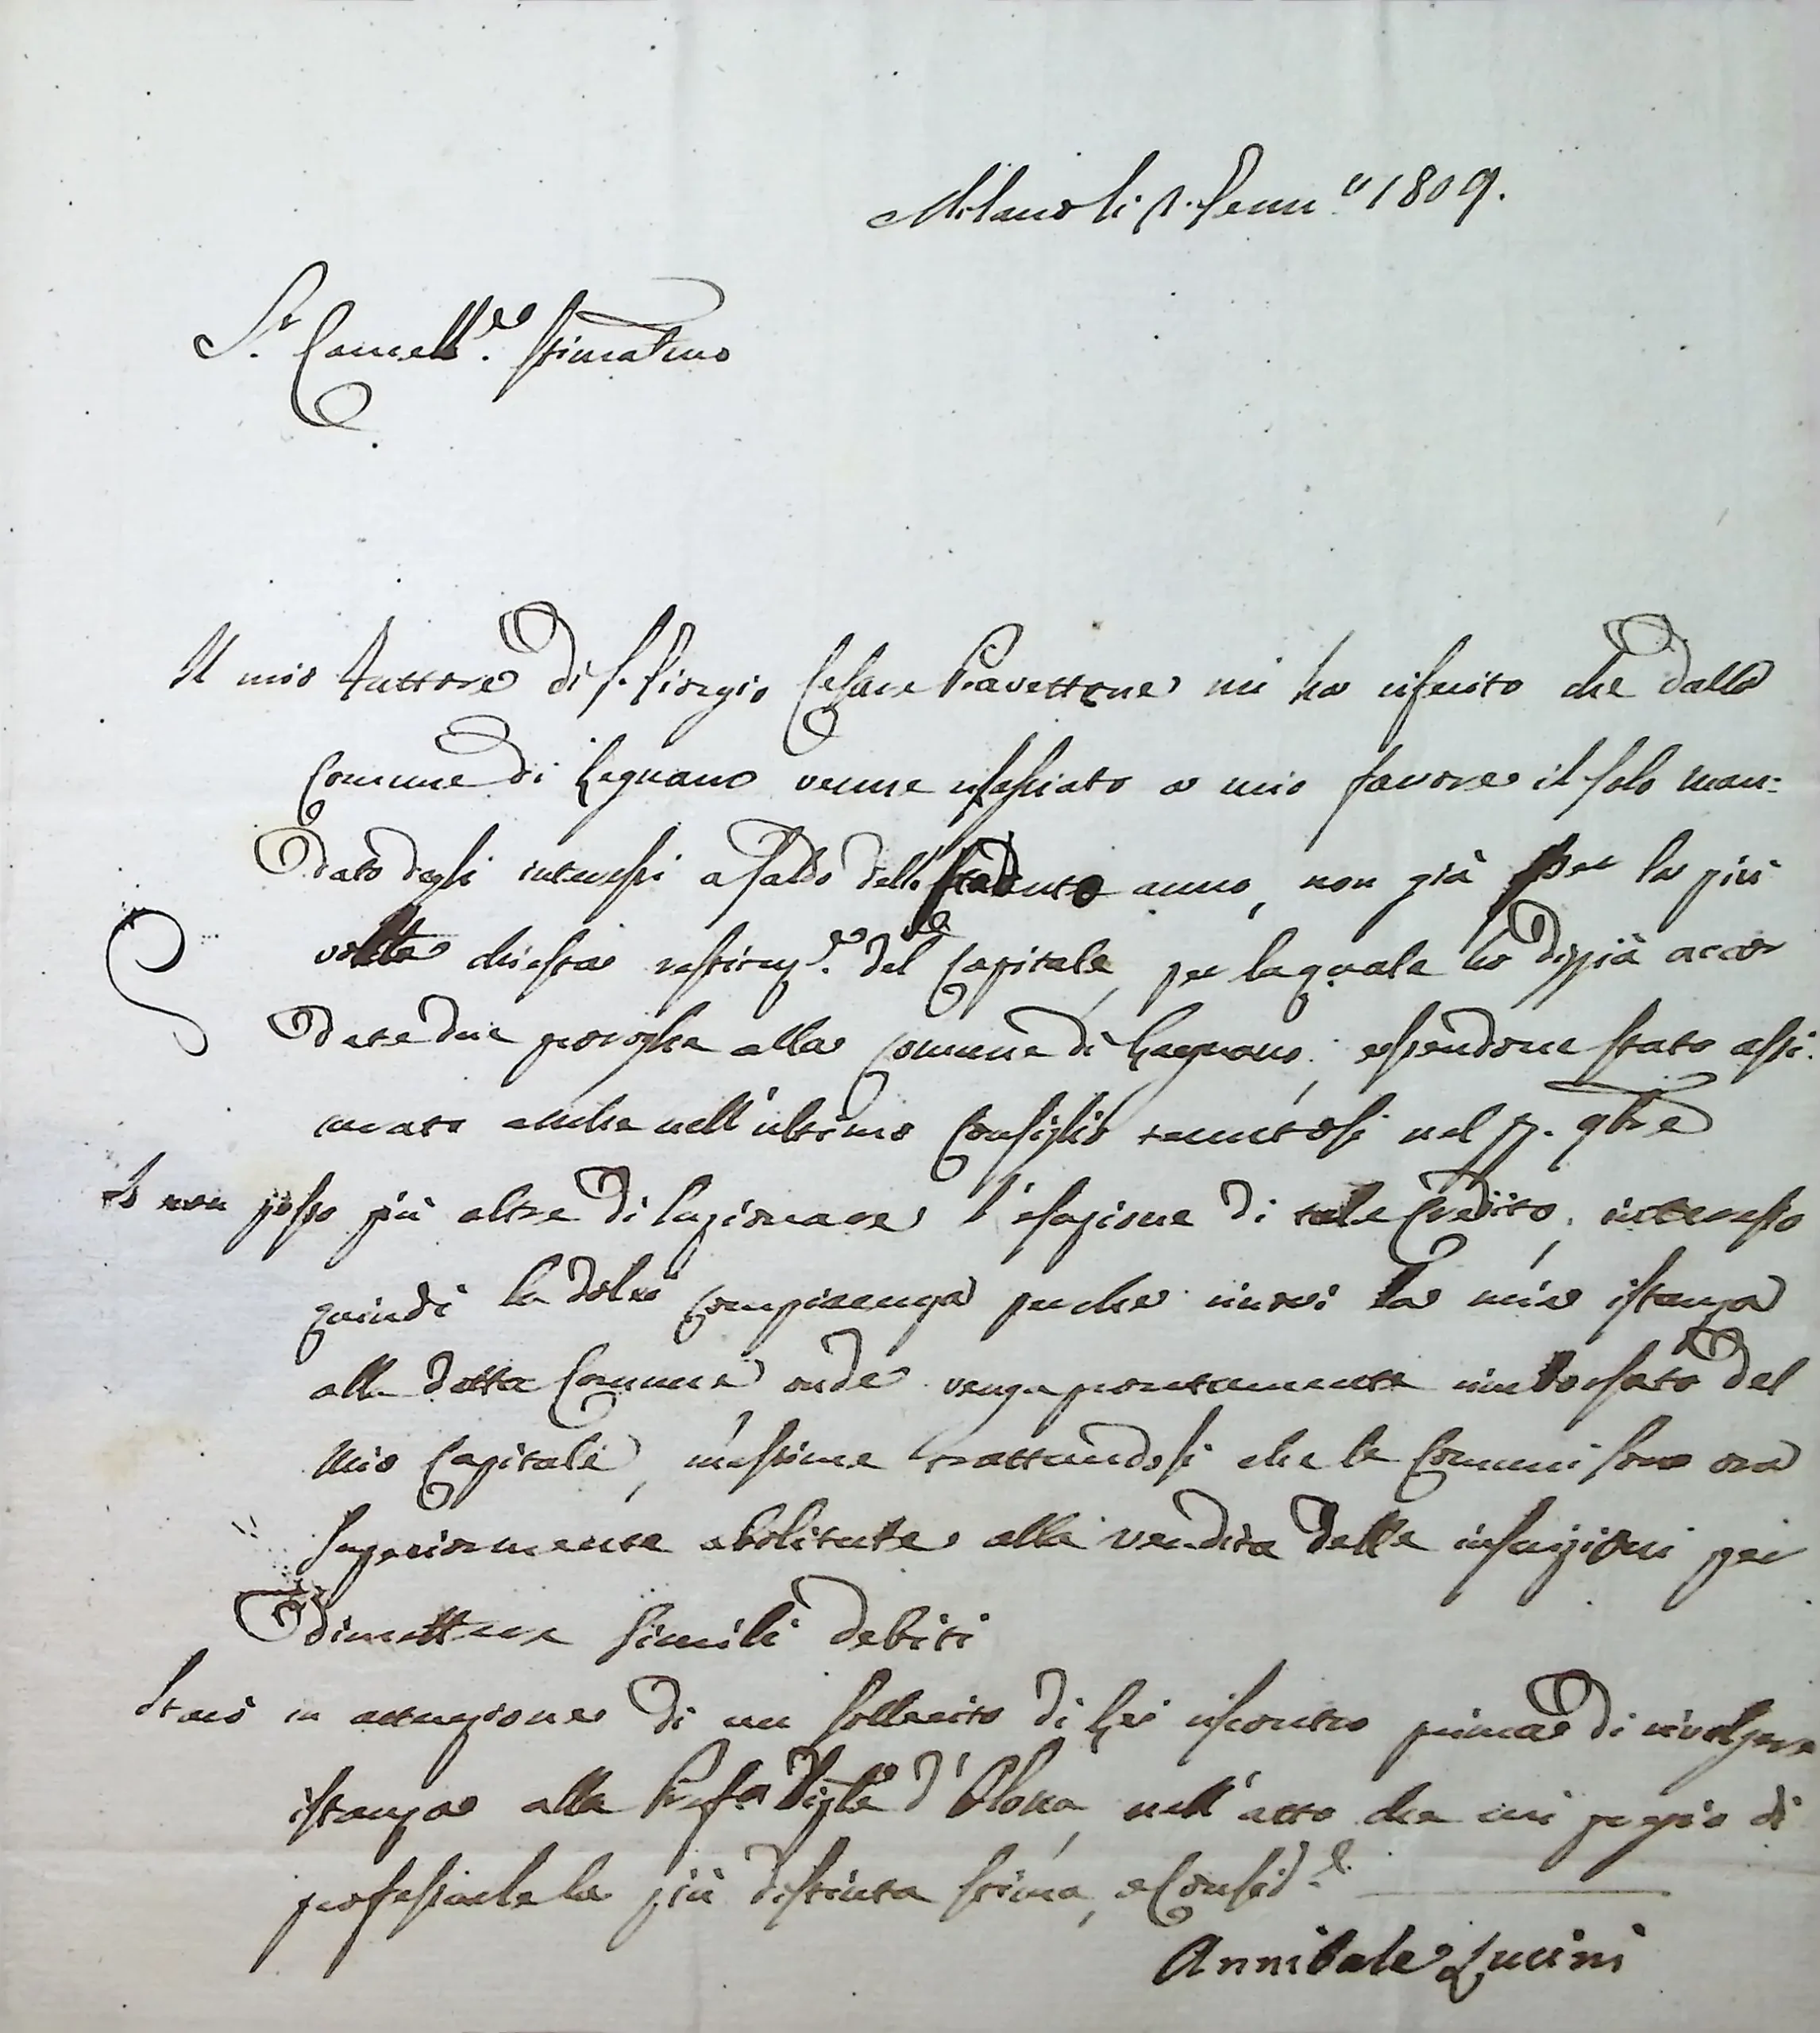 Milano li 2. Genn.o 1809.
S.r Cancell.re Stimat.mo
Il mio Fattore di S. Giorgio Cesare Pravettone mi ha riferito che dalla
Comune di Legnano venne rilasciato a mio favore il solo man=
dato degli interessi a saldo dello scaduto anno, non già per la più
volte chiesta restituz.e del Capitale, per la quale ho di già accor
date due proroghe alla Comune di Legnano, essendone stato assi
curato anche nell'ultimo Consiglio tenutosi nel 9bre
Io non posso più oltre dilazionare l'esazione di tale Credito, interesso
quindi la di lei compiacenza perché rinovi la mia istanza
alla detta Comune, onde venga prontamente rimborsato del
mio Capitale, massime trattandosi che le Comuni sono ora
superiormente abilitate alla vendita delle inscrizioni per
dimettere simili debiti
Starò in attenzione di un sollecito di Lei riscontro prima di rivolgere
istanza alla Pref.a d'Olona, nell'atto che mi pregio di
professarle la più distinta stima, e Consid.e
Annibale Lucini